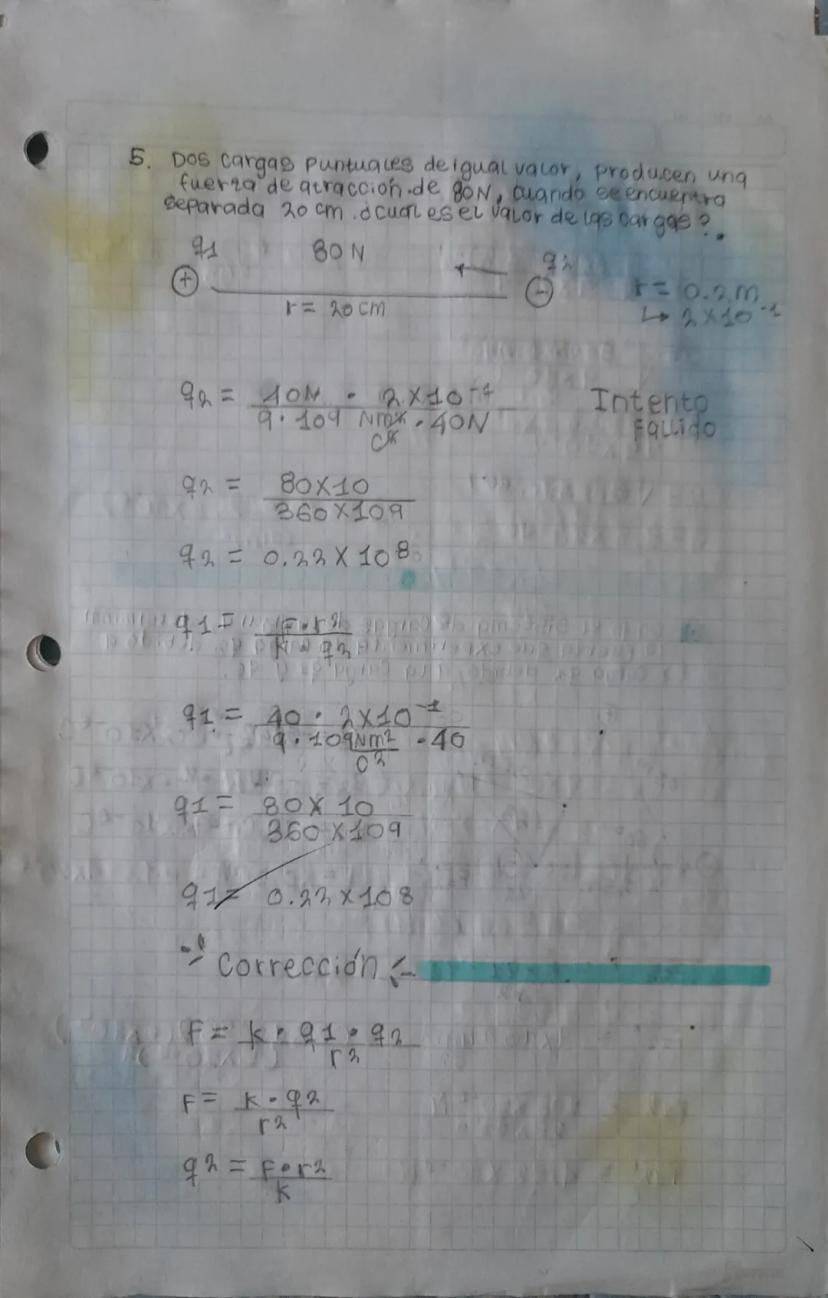 5. Dos cargas puntuales de igual valor, producen una
fuerza de atracción de 80N, cuando se encuentra
separada 20 cm. ¿cual es el valor de las cargas?
q1 80N q2
+ - r = 0.2m
r = 20cm ↳ 2×10⁻¹
q2 = 40N · 2×10⁻¹ Intento
9·109 Nm²/C² · 40N Fallido
q2 = 80×10
360×109
q2 = 0.22×10⁸
q1 = F·r²
k · q2
q1 = 40 · 2×10⁻¹
9·109 Nm²/C² · 40
q1 = 80×10
360×109
q1 = 0.22×108
Corrección ←
F = k · q1 · q2
r²
F = k · q2
r²
q2 = F·r2
k